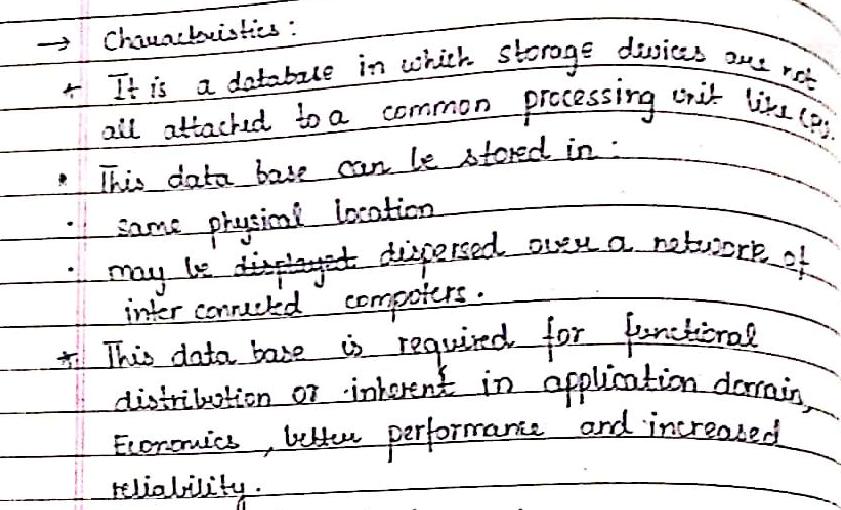 → Characteristics :
* It is a database in which storage devices are not
all attached to a common processing unit like CPU.
• This data base can be stored in :
· same physical location
· may be displayed dispersed over a network of
inter connected computers.
* This data base is required for functional
distribution or inherent in application domain,
Economics , better performance and increased
reliability.